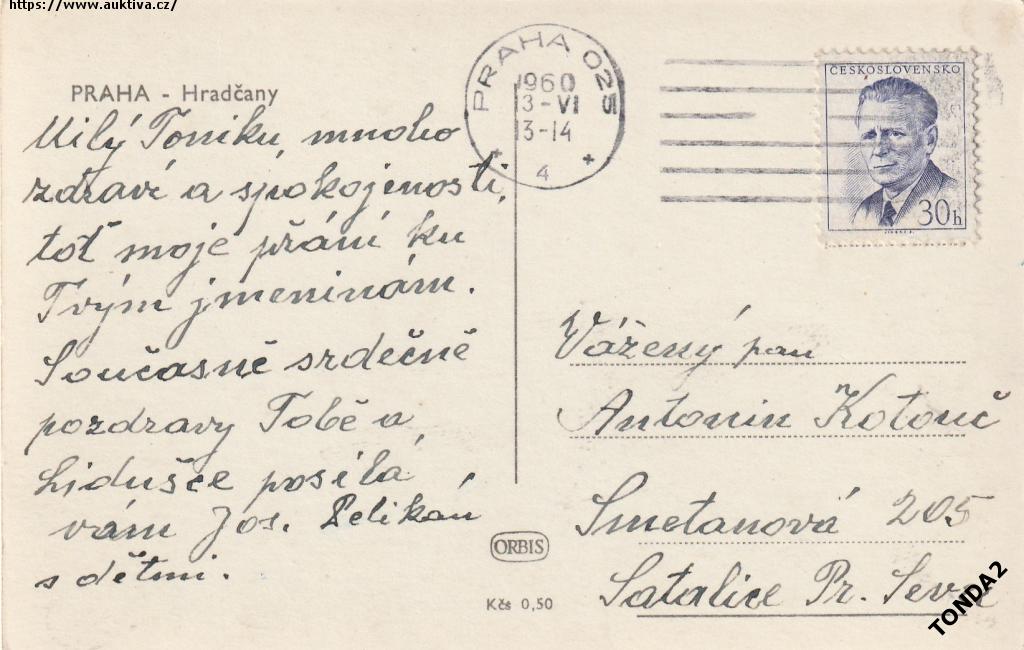 https://www.auktiva.cz/
PRAHA - Hradčany
Milý Toniku, mnoho
zdraví a spokojenosti,
toť moje přání ku
Tvým jmeninám.
Současně srdečně
pozdravy Tobě a
Lidušce posílá
vám Jos. Pelikán
s dětmi.
PRAHA 025
1960
3-VI
13-14
4
ČESKOSLOVENSKO
30h
Vážený pan
Antonin Kotouč
Smetanová 205
Satalice Pr. Sever
ORBIS
Kčs 0,50
TONDA2